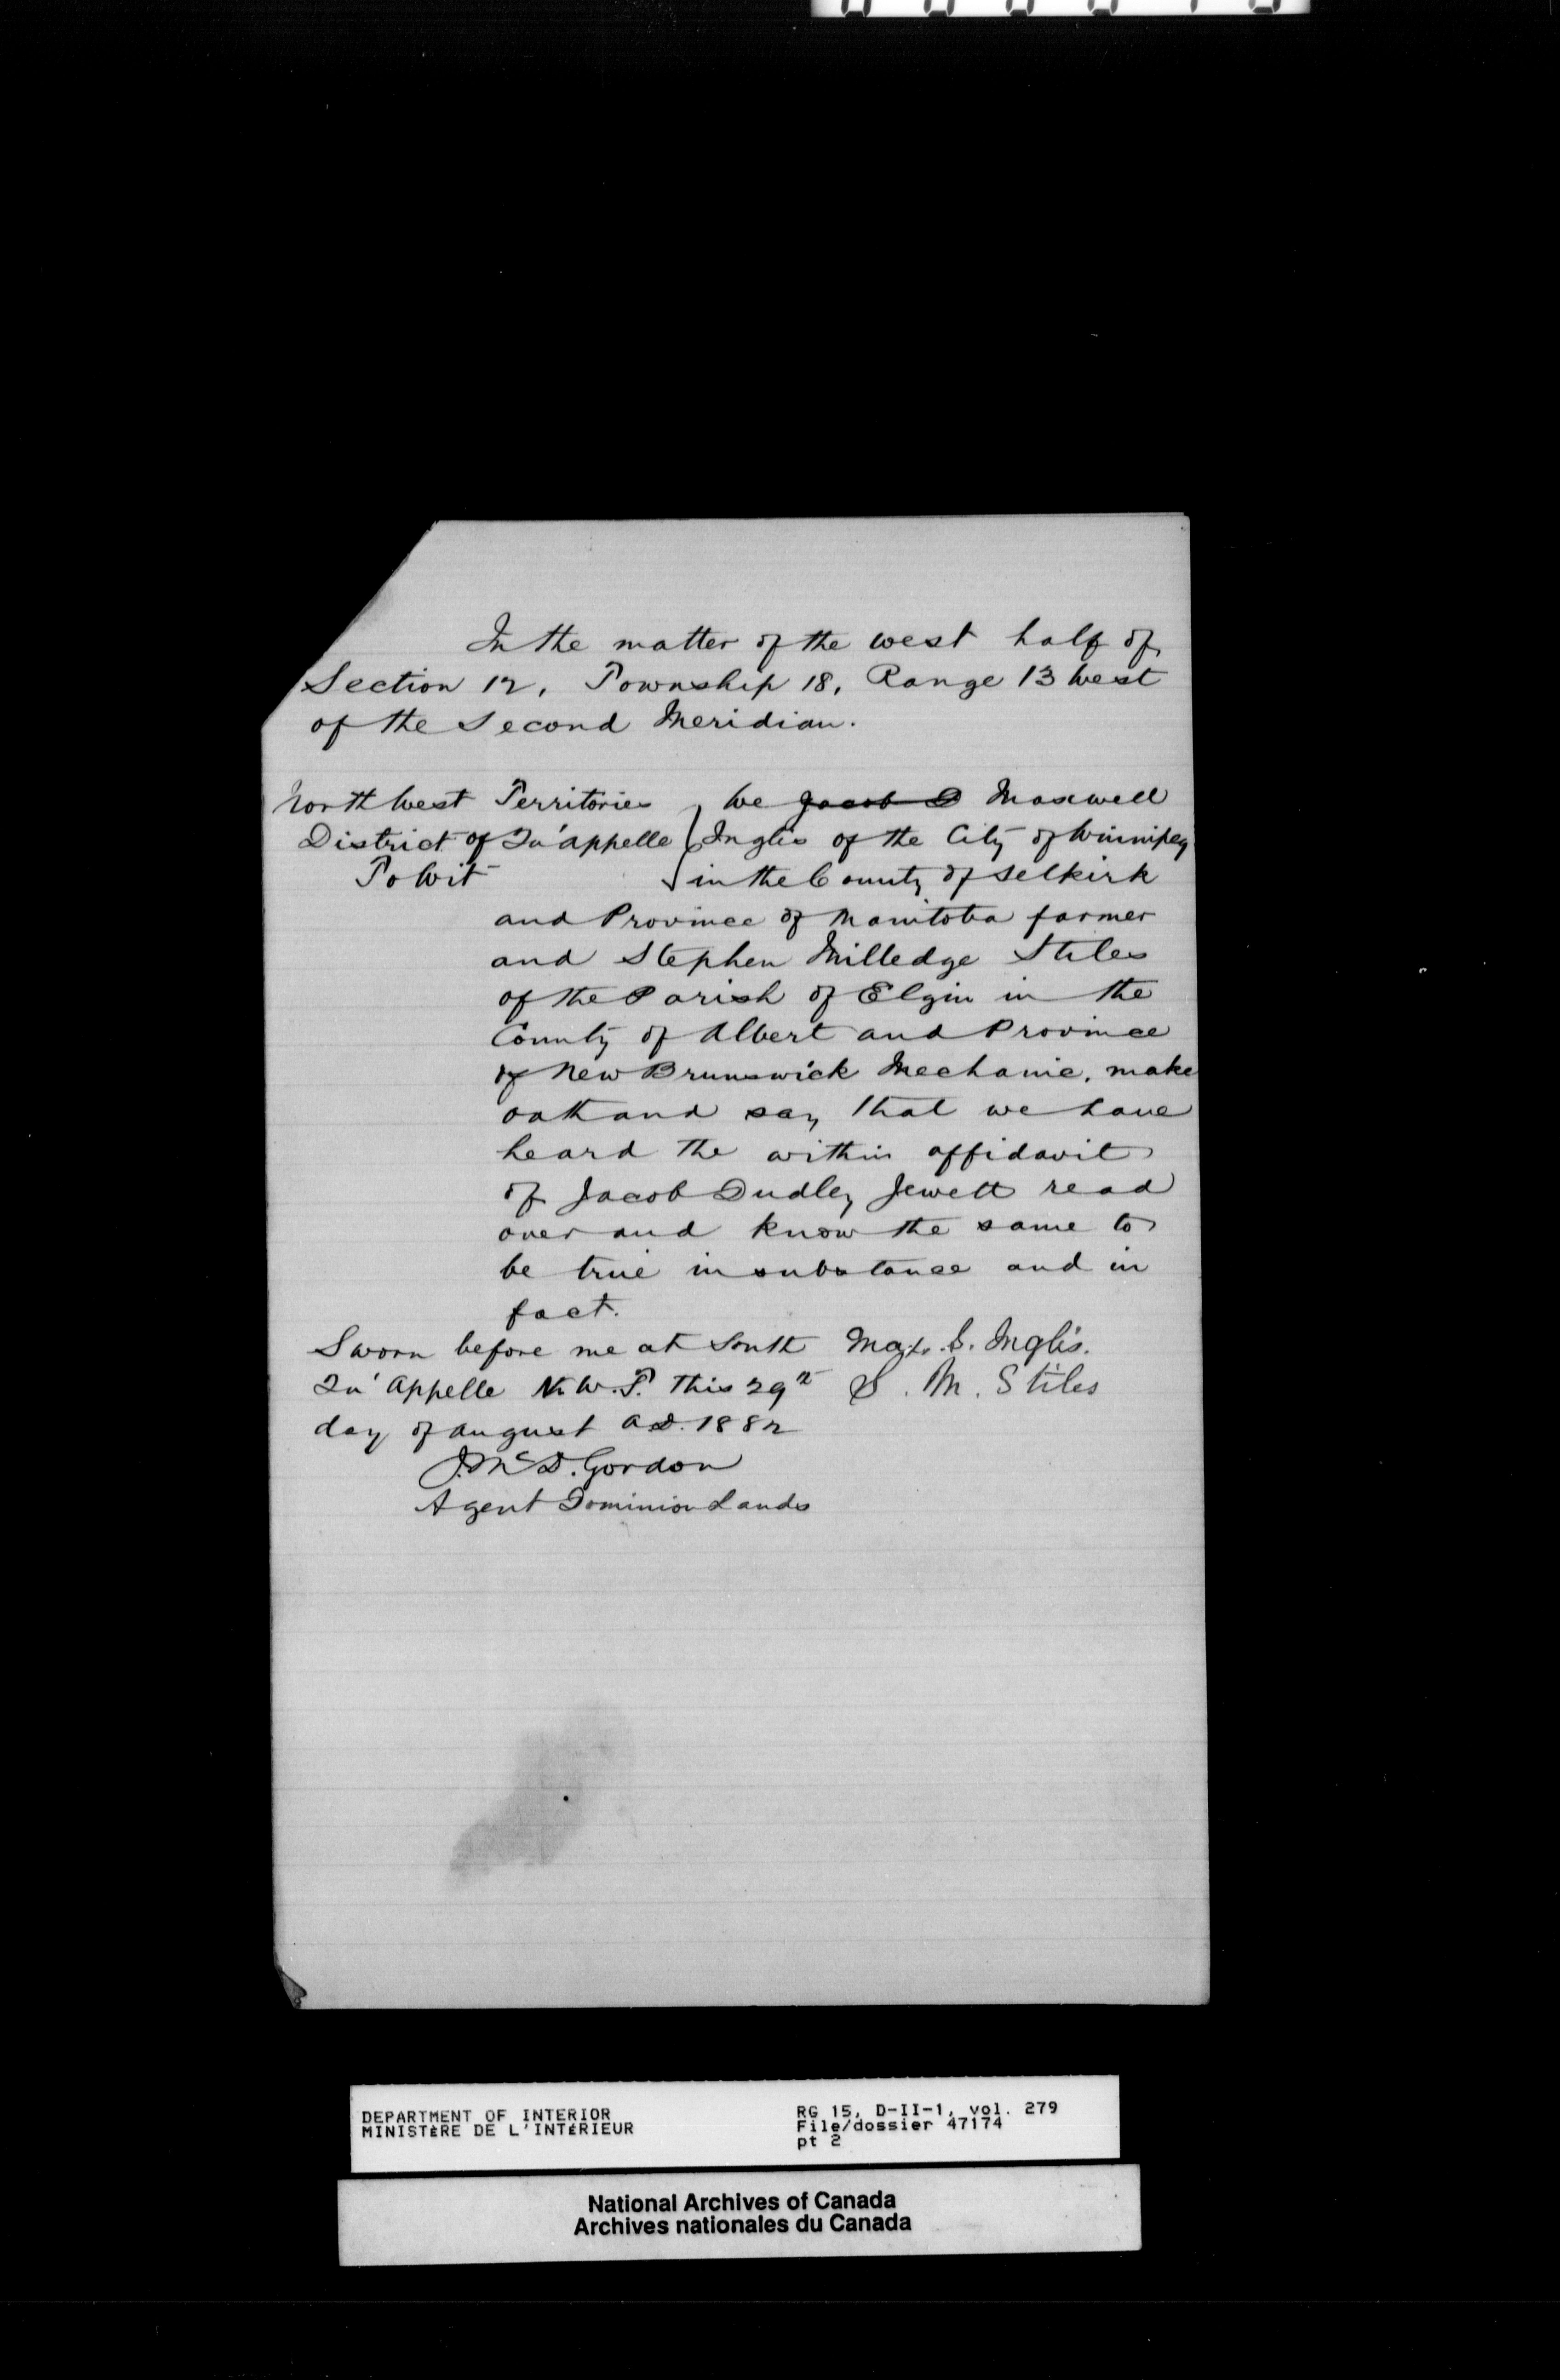 In the matter of the west half of
Section 12, Township 18, Range 13 West
of the Second Meridian.
North West Territories
District of Qu'appelle
To Wit
We Jacob D Maxwell
Inglis of the City of Winnipeg
in the County of Selkirk
and Province of Manitoba farmer
and Stephen Milledge Stiles
of the Parish of Elgin in the
County of Albert and Province
of New Brunswick Mechanic, make
oath and say that we have
heard the within affidavit
of Jacob Dudley Jewett read
over and know the same to
be true in substance and in
fact.
Sworn before me at South
Qu'Appelle N.W.T. this 29th
day of august A.D. 1882
J. McD. Gordon
Agent Dominion Lands
S. Inglis.
S. M. Stiles
DEPARTMENT OF INTERIOR
MINISTÈRE DE L'INTÉRIEUR
RG 15, D-II-1, vol. 279
File/dossier 47174
pt 2
National Archives of Canada
Archives nationales du Canada